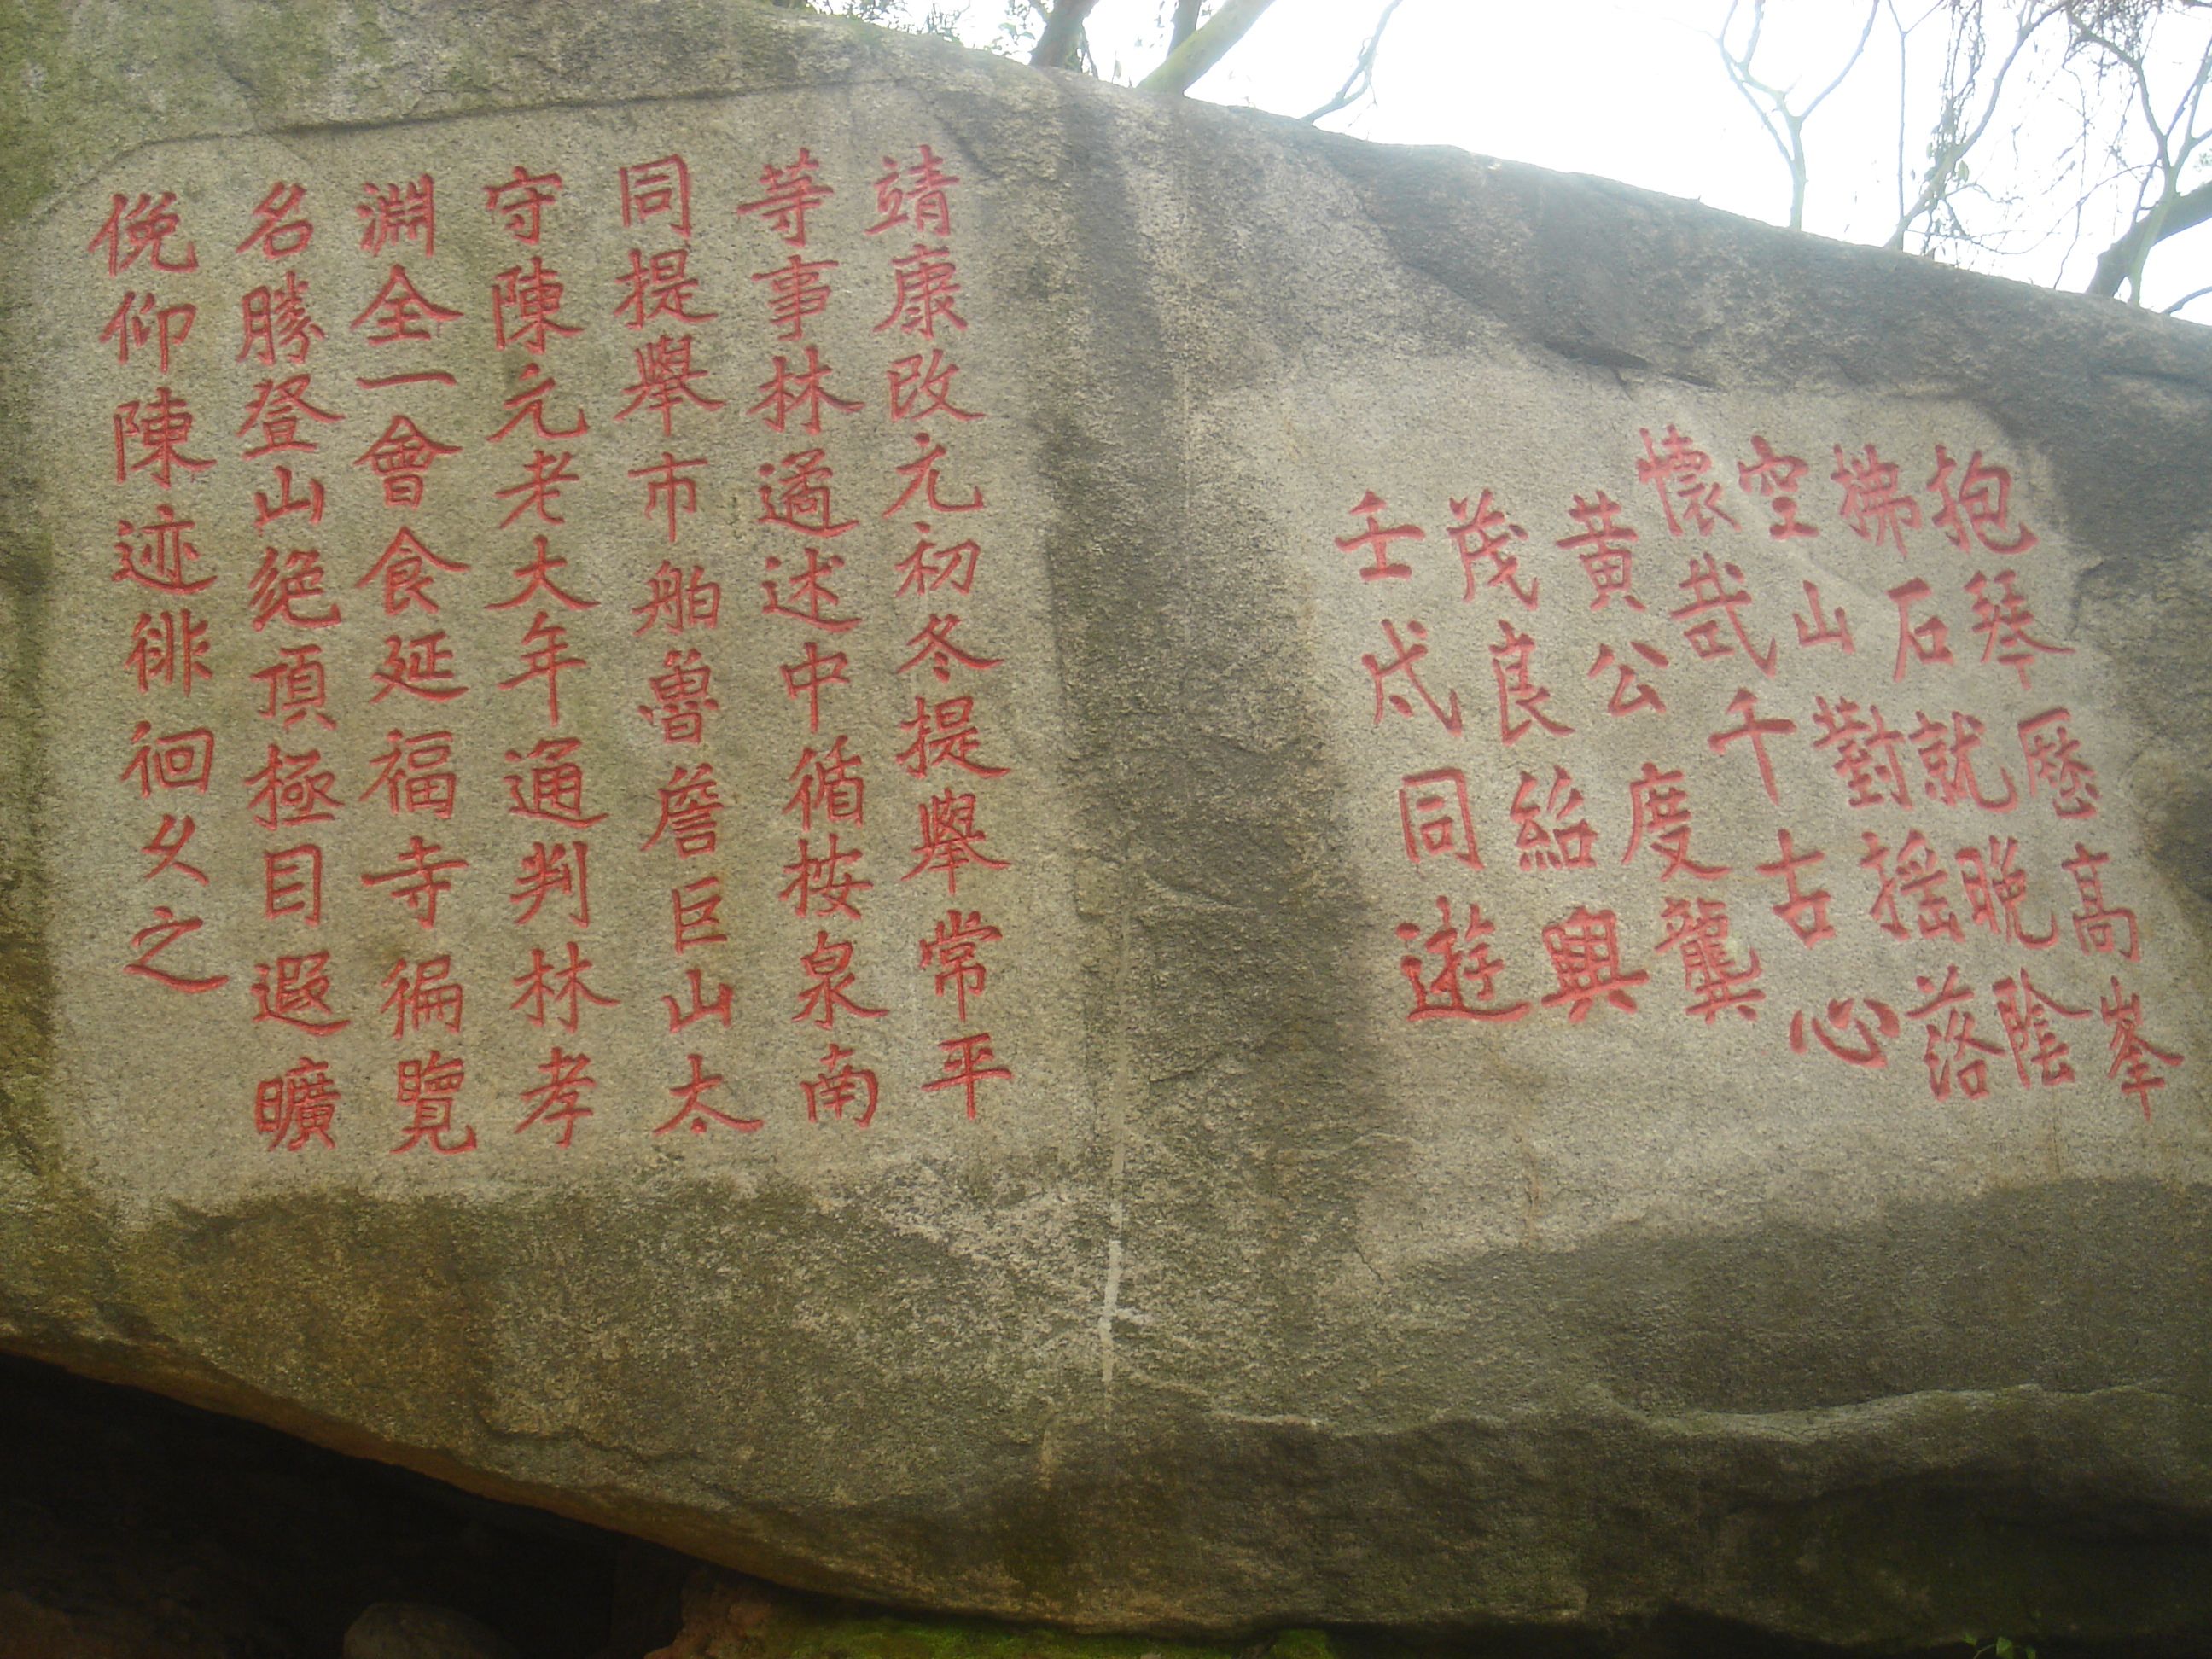 抱琴歷高峯
拂石就晚陰
空山對揺落
懷哉千古心
黃公度龔
茂良紹興
壬戌同遊
靖康改元初冬提舉常平
等事林遹述中循按泉南
同提舉市舶魯詹巨山太
守陳元老大年通判林孝
淵全一會食延福寺徧覽
名勝登山絶頂極目遐曠
俛仰陳迹徘徊久之